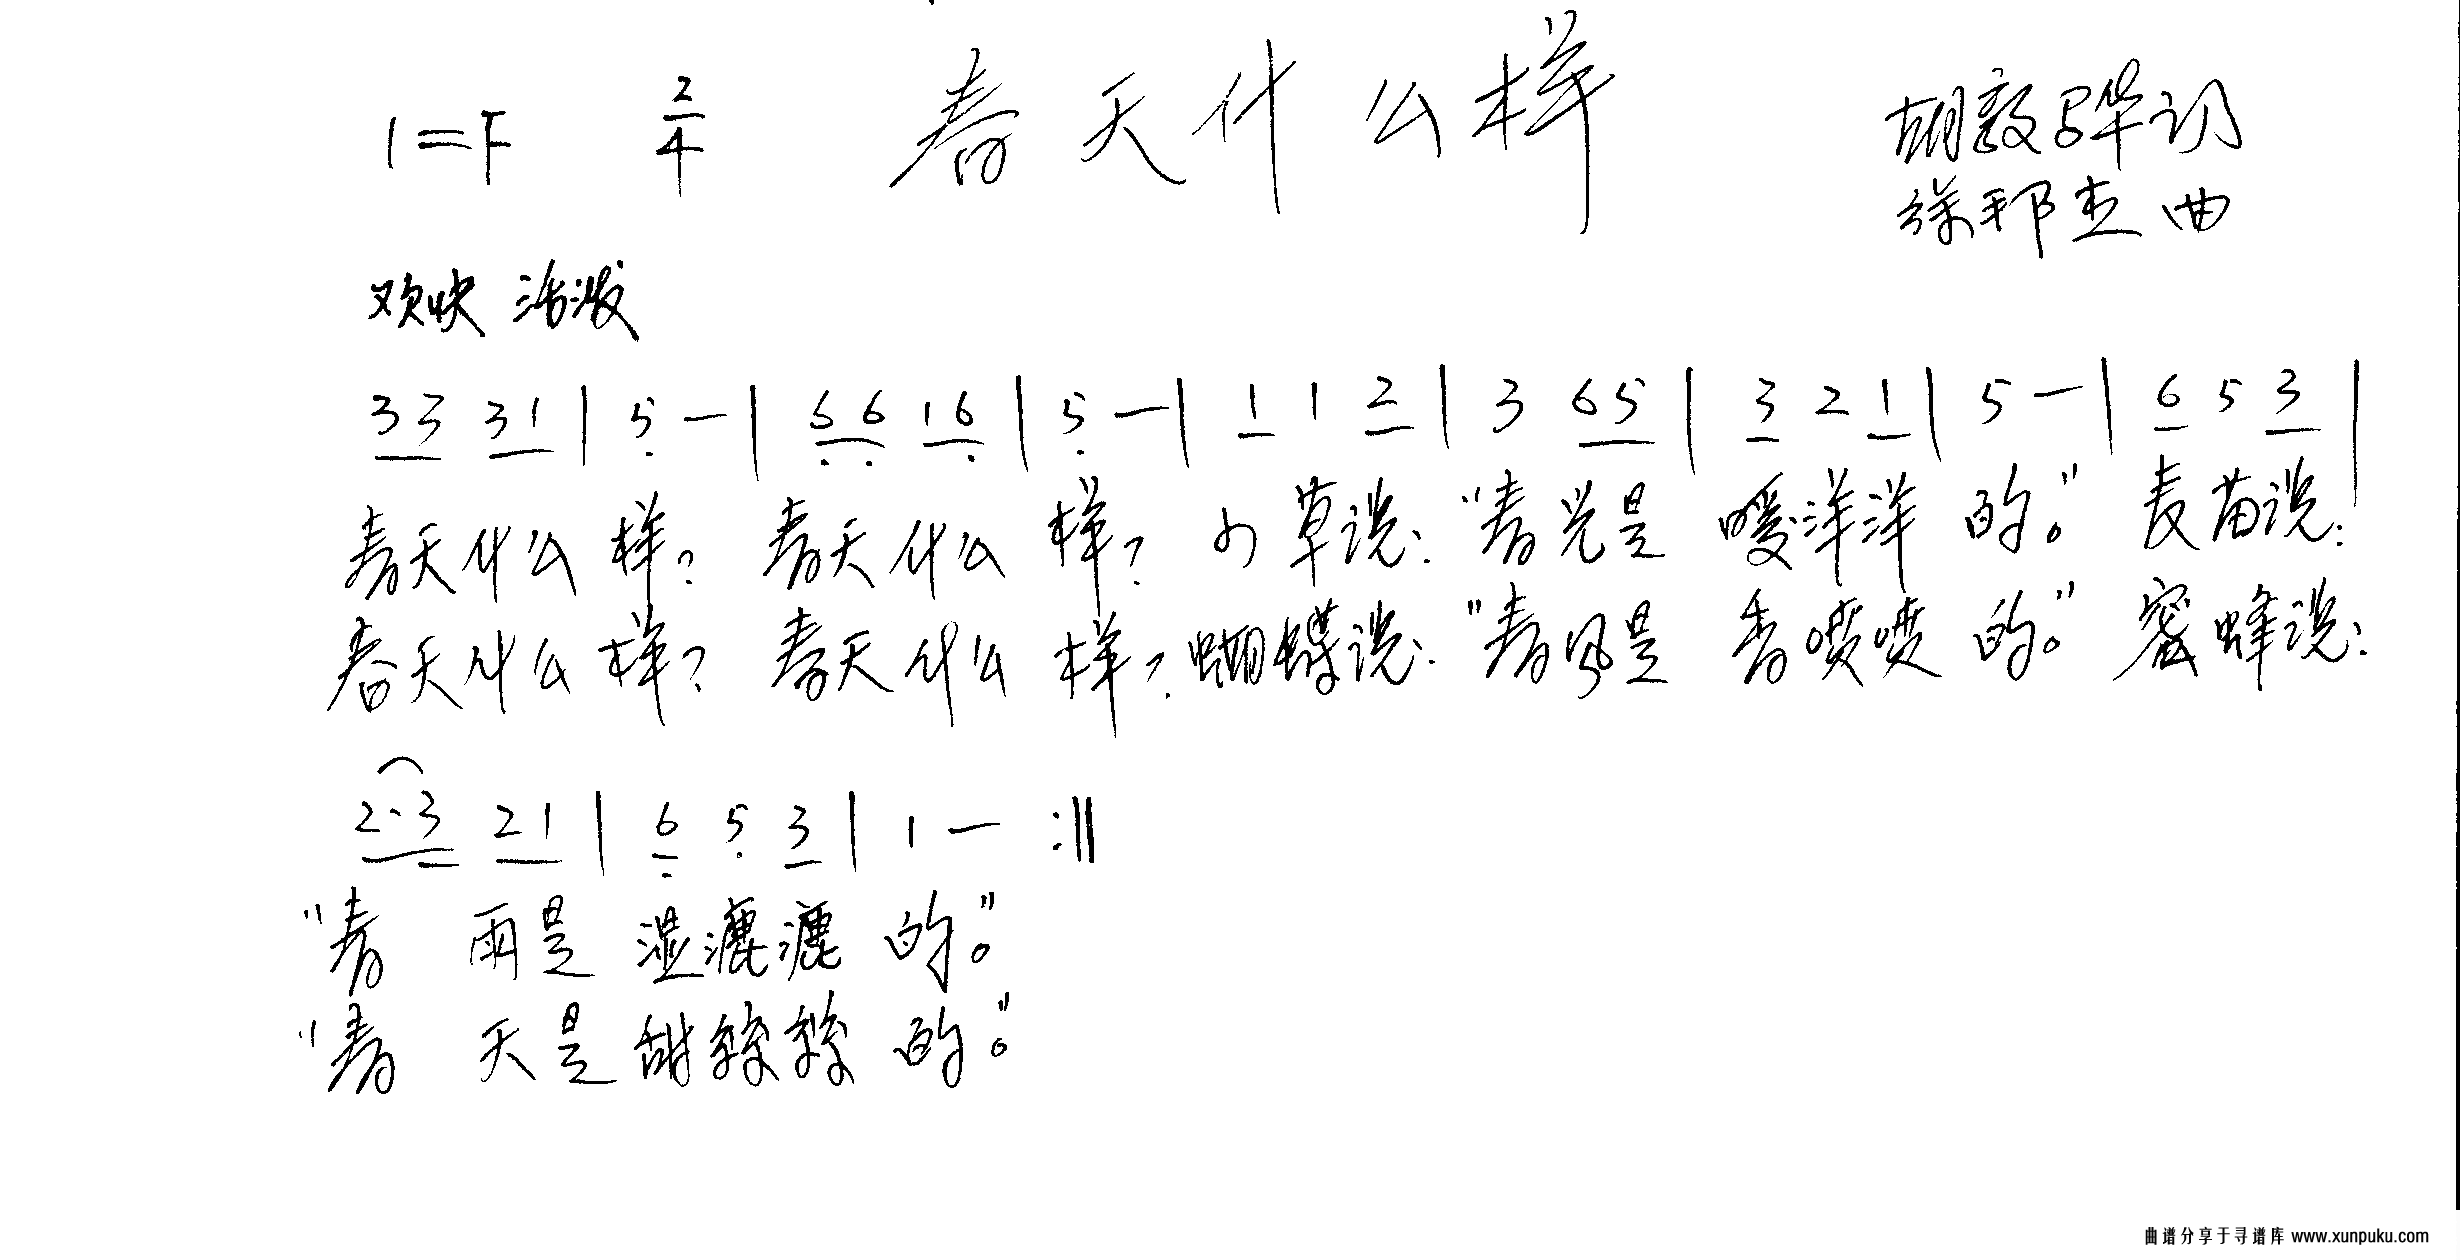 1=F 2/4 春天什么样 胡敦骅词
徐邦杰曲
欢快 活泼
3 3 3 1 | 5 — | 6 6 1 6 | 5 — | 1 1 2 | 3 6 5 | 3 2 1 | 5 — | 6 5 3 |
春天什么样？ 春天什么样？ 小草说：“春光是 暖洋洋的。” 麦苗说：
春天什么样？ 春天什么样？ 蝴蝶说：“春风是 香喷喷的。” 蜜蜂说：
2·3 2 1 | 6 5 3 | 1 — :||
“春 雨是 湿漉漉 的。”
“春 天是 甜丝丝 的。”
曲谱分享于寻谱库 www.xunpuku.com